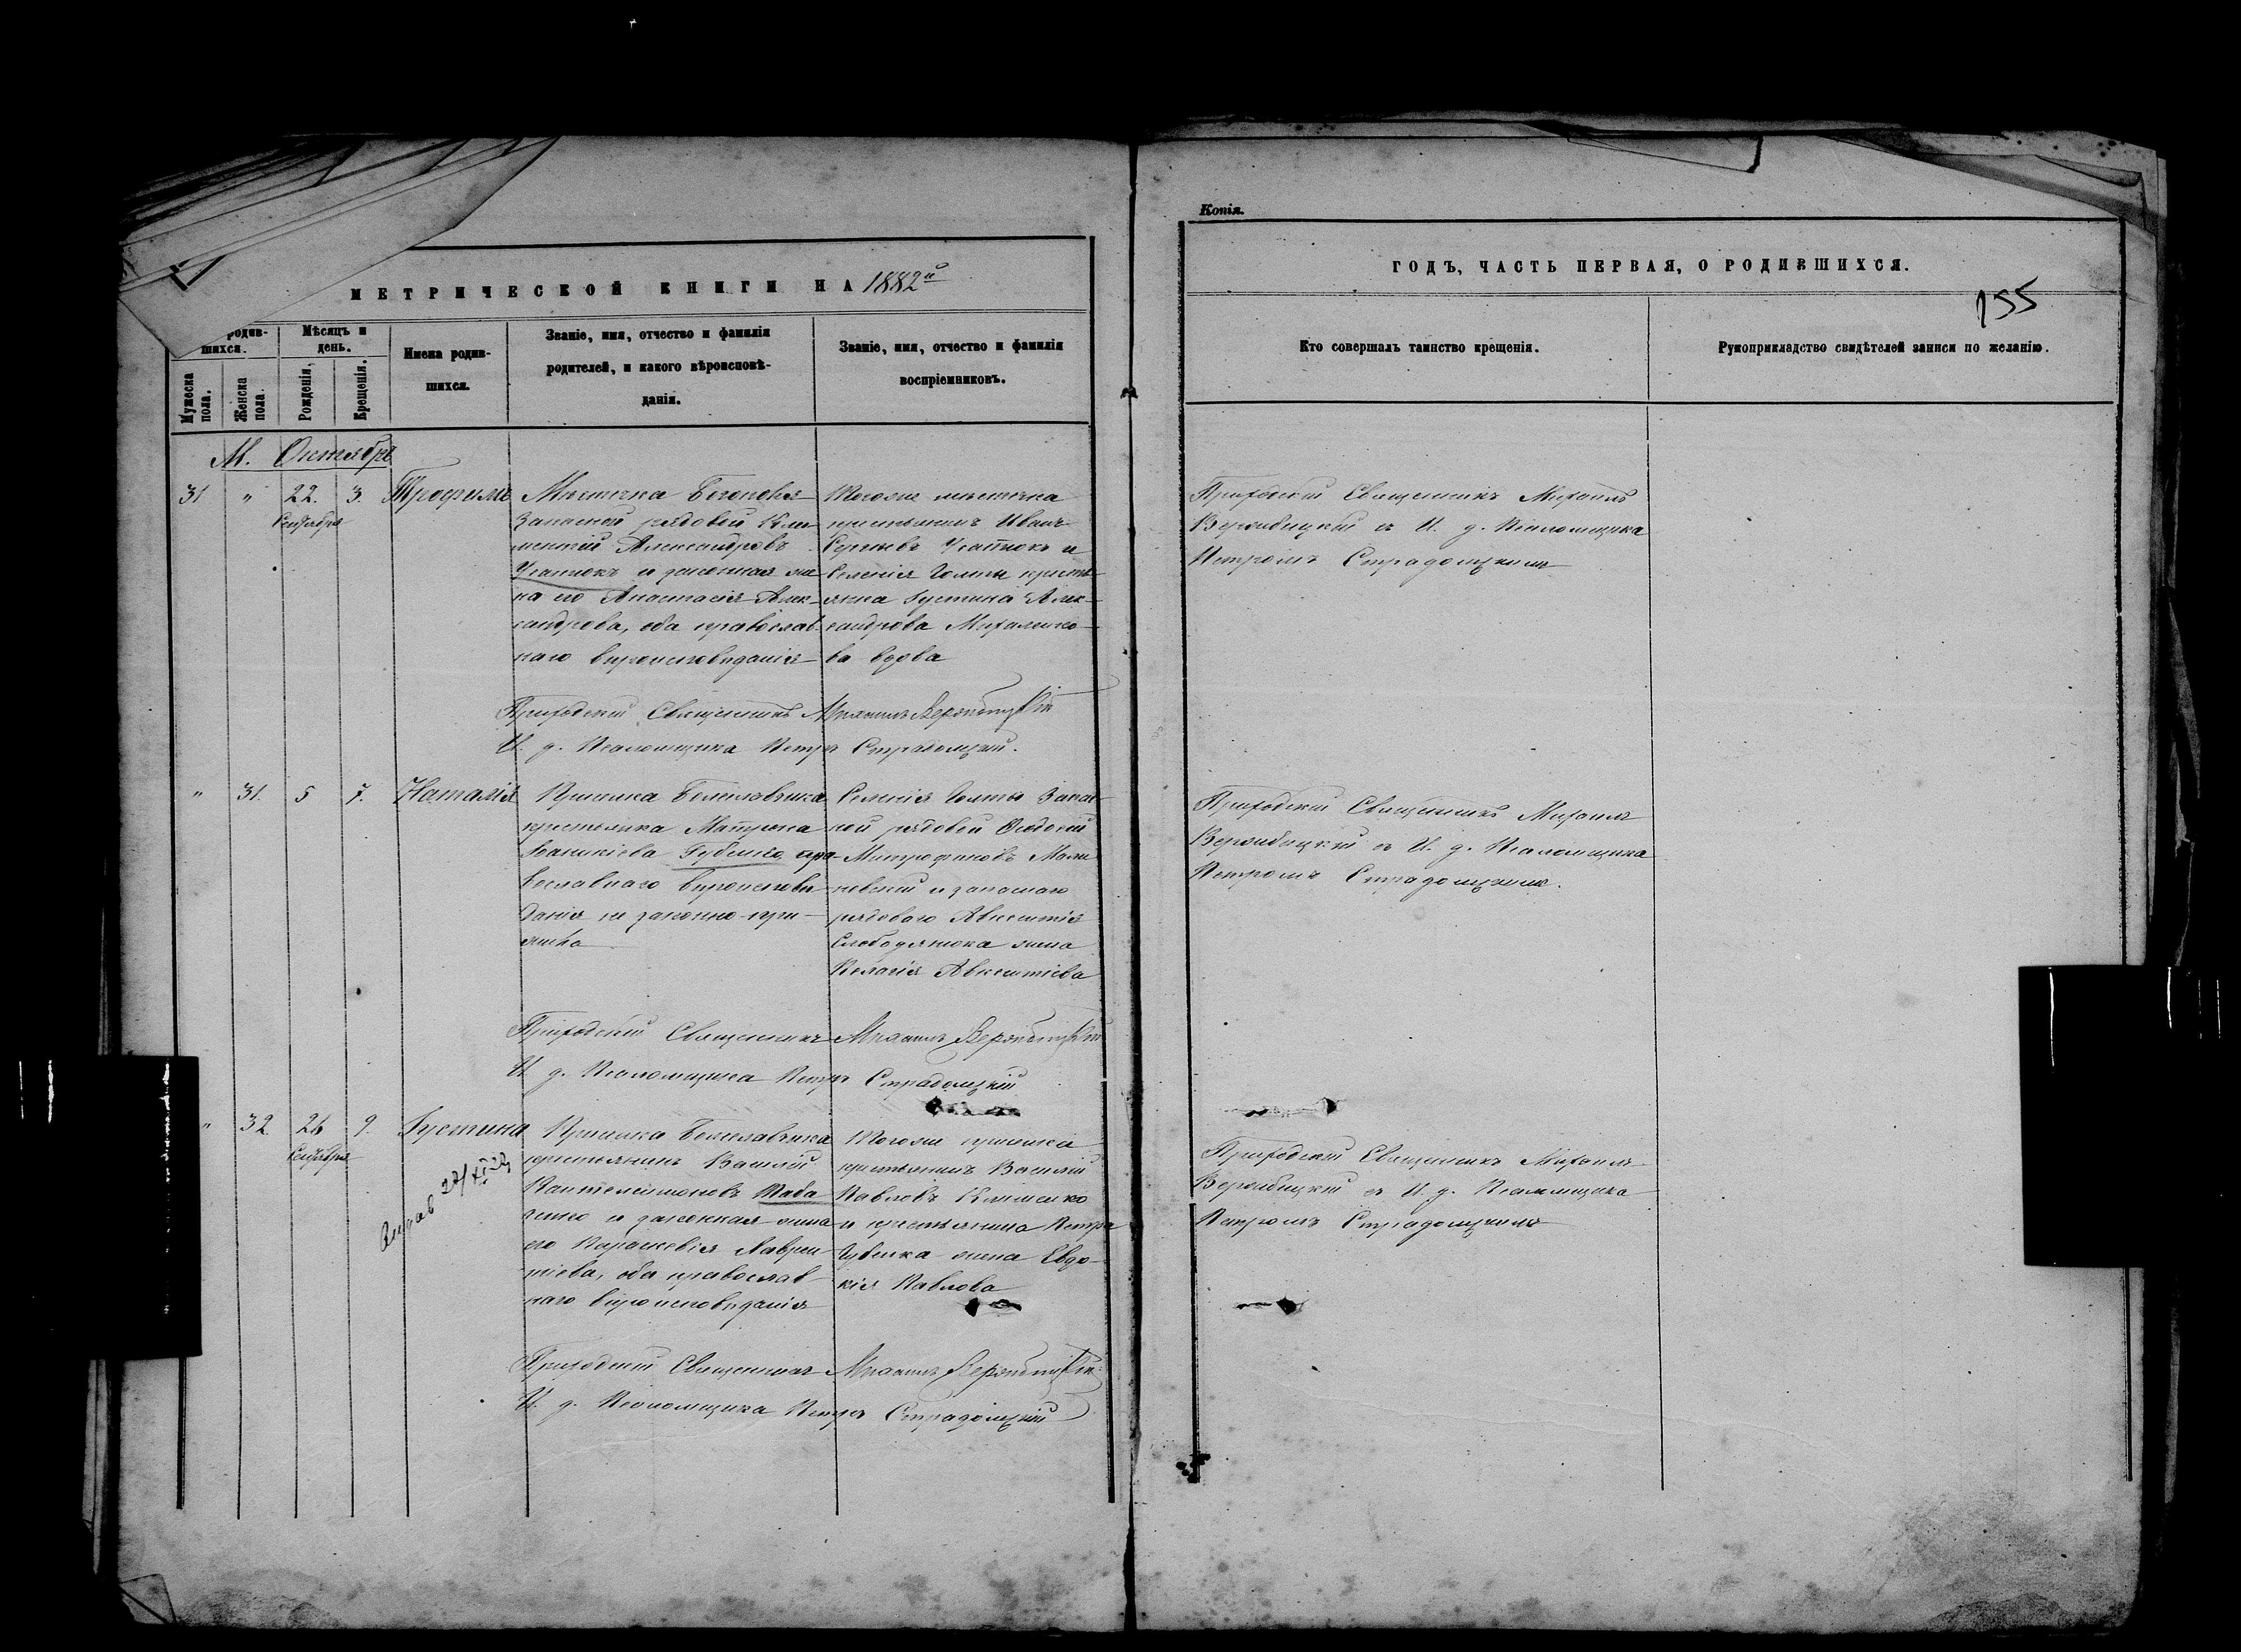 Копія.
МЕТРИЧЕСКОЙ КНИГИ НА 1882й
ГОДЪ, ЧАСТЬ ПЕРВАЯ, О РОДИВШИХСЯ.
155
родив-
шихся.
Мужеска пола.
Женска пола.
Мѣсяцъ и день.
Рожденія.
Крещенія.
Имена родив-
шихся.
Званіе, имя, отчество и фамилія
родителей, и какого вѣроисповѣ-
данія.
Званіе, имя, отчество и фамилія
воспріемниковъ.
Кто совершалъ таинство крещенія.
Рукоприкладство свидѣтелей записи по желанію.
М. Октябрь
31 " 22. Сентября 3. Трофимъ
Мѣстечка Богополя
запасной рядовой Кли-
ментій Александровъ
Усатюкъ и законная же-
на его Анастасія Алек-
сандрова, оба православ-
наго вѣроисповѣданія
Тогоже мѣстечка
крестьянинъ Иванъ
Сергѣевъ Усатюкъ и
селенія Голты кресть-
янка Іустина Алек-
сандрова Михаленко-
ва вдова
Приходскій Священникъ Михаилъ
Вержбицкій съ И. д. Псаломщика
Петромъ Страдомскимъ
Приходскій Священникъ Михаилъ Вержбицкій
И. д. Псаломщика Петръ Страдомскій.
" 31. 5 7. Наталія
Приселка Болеславчика
крестьянка Матрона
Іоаникіева Губенко, пра-
вославнаго вѣроисповѣ-
данія не законно-при-
жита
Селенія Голты Запас-
ной рядовой Феодосій
Митрофановъ Мали-
невскій и запаснаго
рядоваго Авксентія
Слободянюка жена
Пелагія Авксентіева
Приходскій Священникъ Михаилъ
Вержбицкій съ И. д. Псаломщика
Петромъ Страдомскимъ.
Приходскій Священникъ Михаилъ Вержбицкій
И. д. Псаломщика Петръ Страдомскій
" 32. 26 Сентября 9. Іустина
Приселка Болеславчика
крестьянинъ Василій
Пантелеимоновъ
и законная жена
его Параскевія Лаврен-
тіева, оба православ-
наго вѣроисповѣданія
Тогоже приселка
крестьянинъ Василій
Павловъ Клименко
и крестьянина Петра
Губенка жена Евдо-
кія Павлова
Приходскій Священникъ Михаилъ
Вержбицкій съ И. д. Псаломщика
Петромъ Страдомскимъ
Приходскій Священникъ Михаилъ Вержбицкій
И. д. Псаломщика Петръ Страдомскій